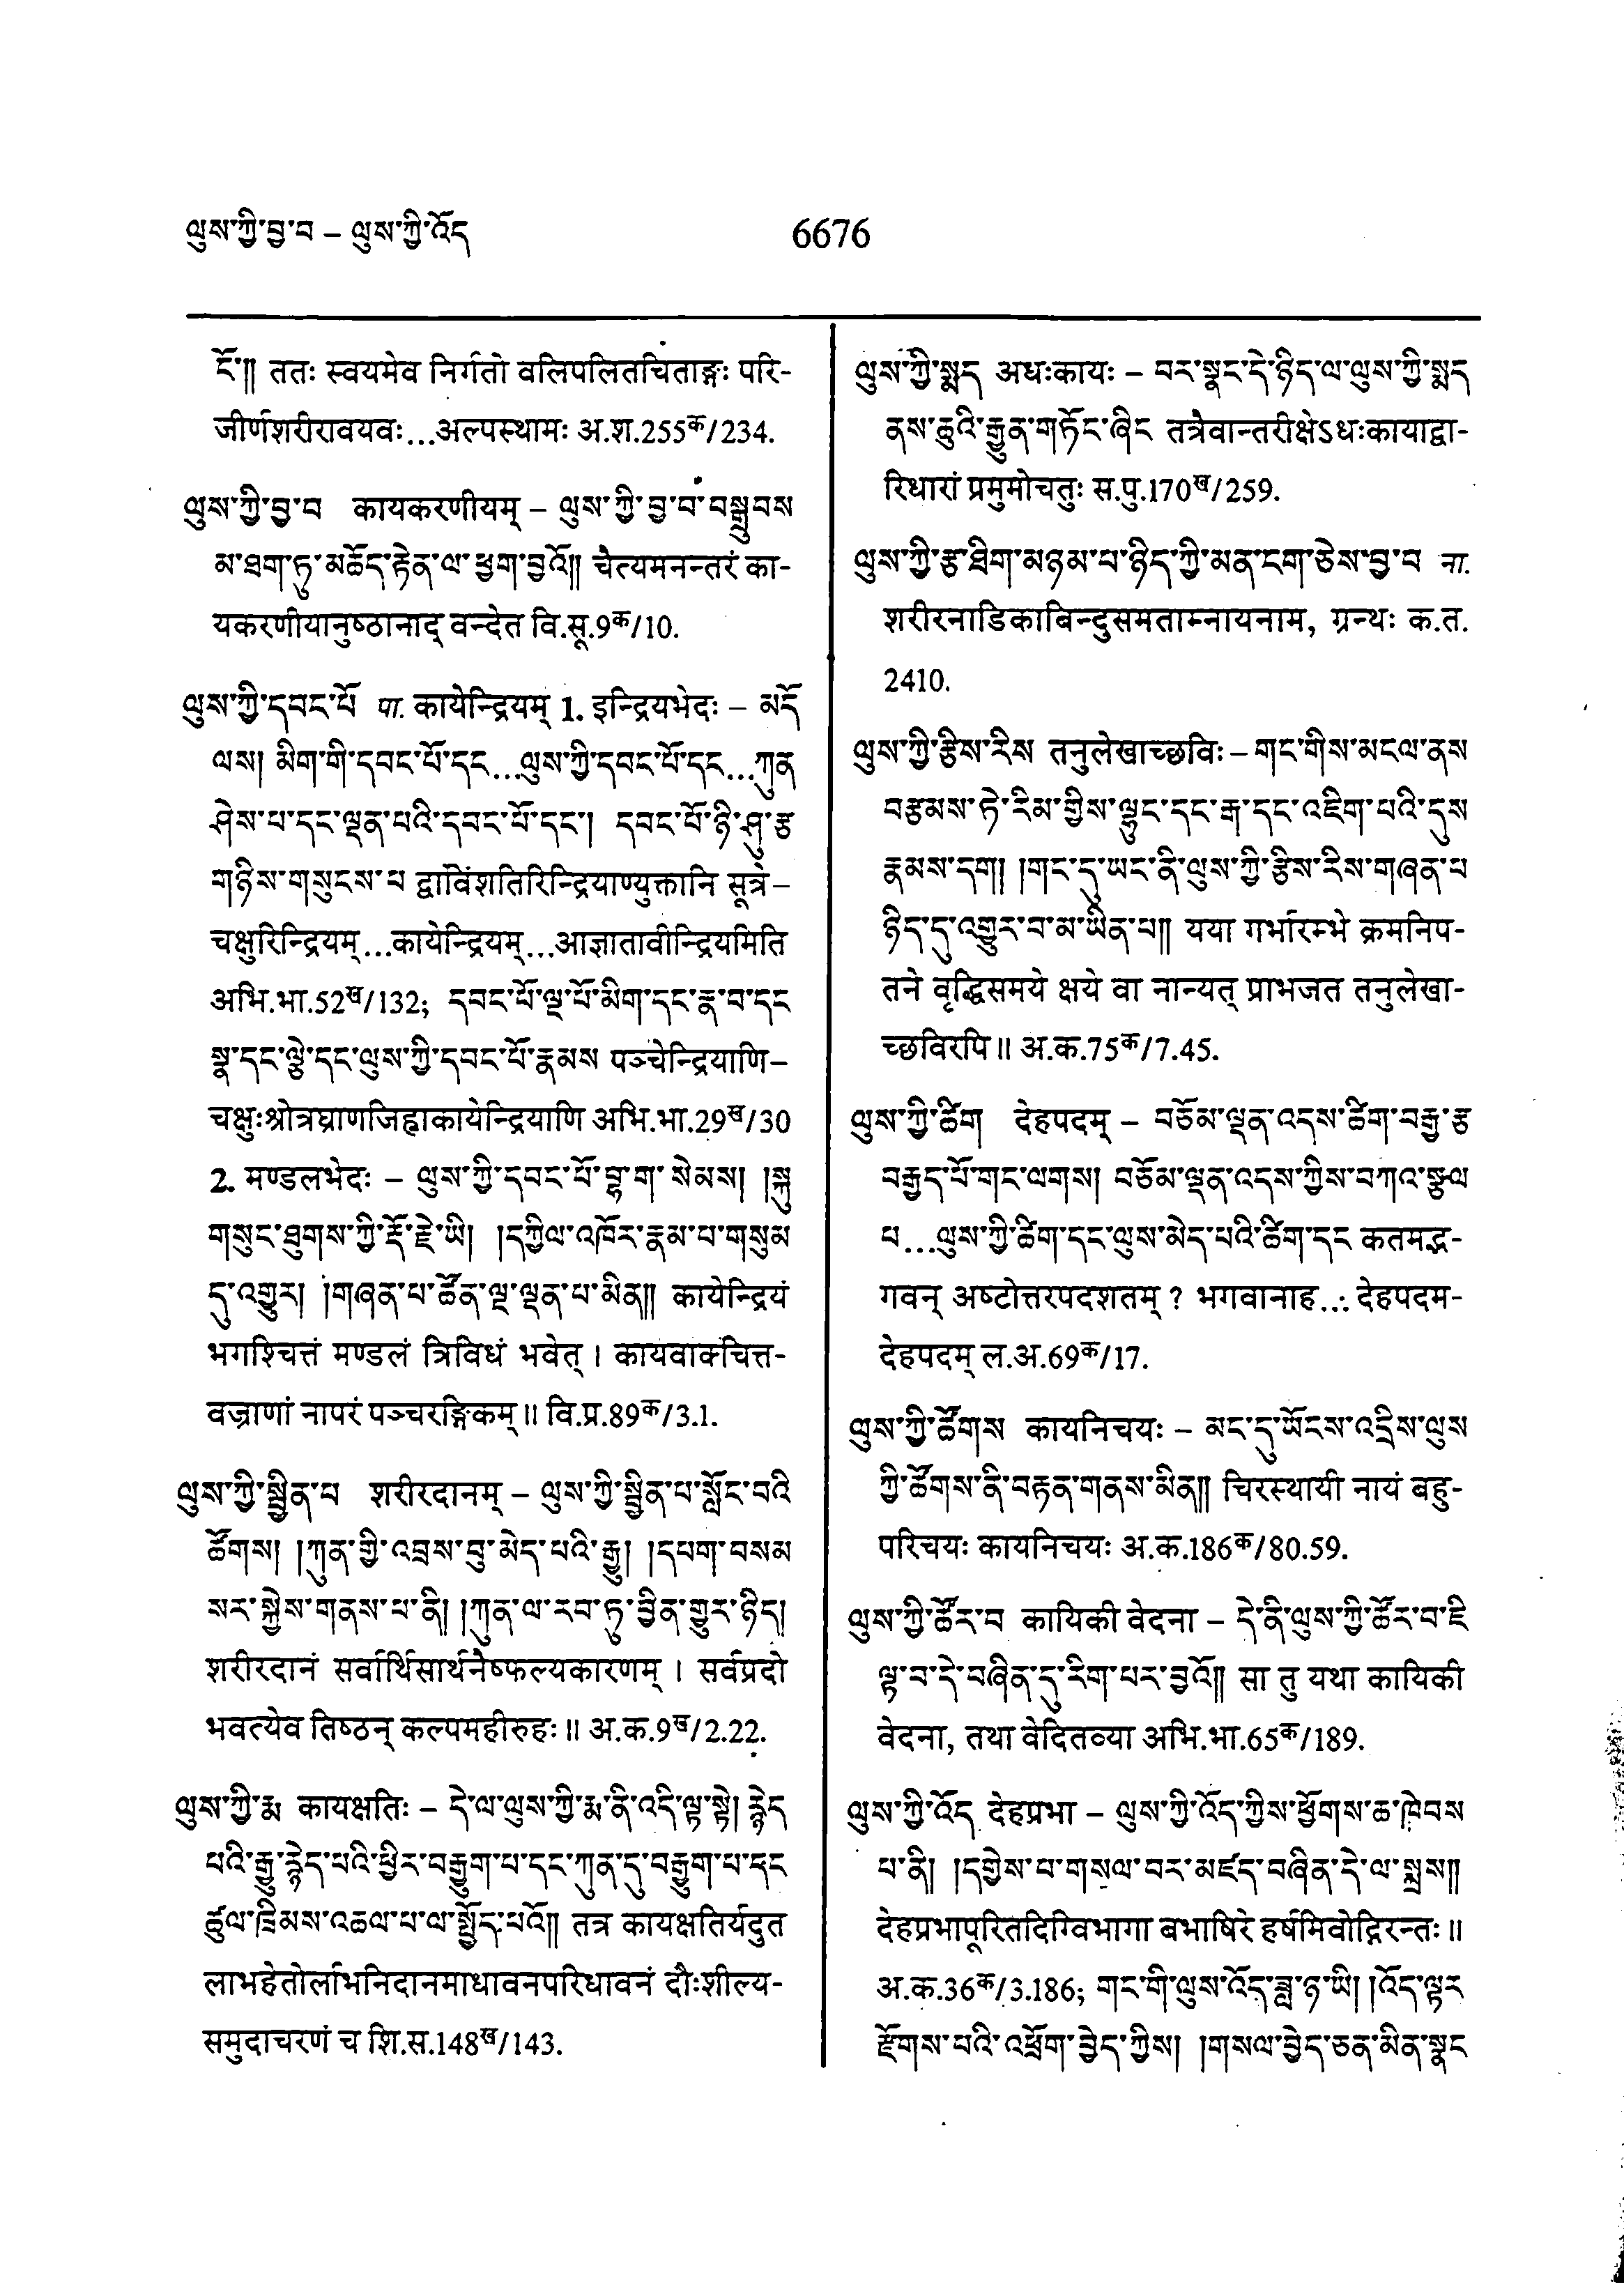 ལུས་ཀྱི་བྱ་བ – ལུས་ཀྱི་འོད
6676
ངོ་༎ ततः स्वयमेव निर्गतो वलिपलितचिताङ्गः परि-
जीर्णशरीरावयवः...अल्पस्थामः अ.श.255क/234.
ལུས་ཀྱི་བྱ་བ कायकरणीयम् – ལུས་ཀྱི་བྱ་བ་བསྒྲུབས
མ་ཐག་ཏུ་མཆོད་རྟེན་ལ་ཕྱག་བྱའོ༎ चैत्यमनन्तरं का-
यकरणीयानुष्ठानाद् वन्देत वि.सू.9क/10.
ལུས་ཀྱི་དབང་པོ पा. कायेन्द्रियम् 1. इन्द्रियभेदः – མདོ
ལས། མིག་གི་དབང་པོ་དང...ལུས་ཀྱི་དབང་པོ་དང...ཀུན
ཤེས་པ་དང་ལྡན་པའི་དབང་པོ་དང་། དབང་པོ་ཉི་ཤུ་རྩ
གཉིས་གསུངས་པ द्वाविंशतिरिन्द्रियाण्युक्तानि सूत्रे–
चक्षुरिन्द्रियम्...कायेन्द्रियम्...आज्ञातावीन्द्रियमिति
अभि.भा.52ख/132; དབང་པོ་ལྔ་པོ་མིག་དང་རྣ་བ་དང
སྣ་དང་ལྕེ་དང་ལུས་ཀྱི་དབང་པོ་རྣམས पञ्चेन्द्रियाणि–
चक्षुःश्रोत्रघ्राणजिह्वाकायेन्द्रियाणि अभि.भा.29ख/30
2. मण्डलभेदः – ལུས་ཀྱི་དབང་པོ་བྷ་ག་ སེམས། །སྐུ
གསུང་ཐུགས་ཀྱི་རྡོ་རྗེ་ཡི། །དཀྱིལ་འཁོར་རྣམ་པ་གསུམ
དུ་འགྱུར། །གཞན་པ་ཚོན་ལྔ་ལྡན་པ་མིན༎ कायेन्द्रियं
भगश्चित्तं मण्डलं त्रिविधं भवेत् । कायवाक्चित्त-
वज्राणां नापरं पञ्चरङ्गिकम् ॥ वि.प्र.89क/3.1.
ལུས་ཀྱི་སྦྱིན་པ शरीरदानम् – ལུས་ཀྱི་སྦྱིན་པ་སློང་བའི
ཚོགས། །ཀུན་གྱི་འབྲས་བུ་མེད་པའི་རྒྱུ། །དཔག་བསམ
སར་སྐྱེས་གནས་པ་ནི། །ཀུན་ལ་རབ་ཏུ་བྱིན་གྱུར་ཉིད།
शरीरदानं सर्वार्थिसार्थनैष्फल्यकारणम् । सर्वप्रदो
भवत्येव तिष्ठन् कल्पमहीरुहः ॥ अ.क.9ख/2.22.
ལུས་ཀྱི་རྨ कायक्षतिः – དེ་ལ་ལུས་ཀྱི་རྨ་ནི་འདི་ལྟ་སྟེ། རྙེད
པའི་རྒྱུ་རྙེད་པའི་ཕྱིར་བརྒྱུག་པ་དང་ཀུན་དུ་བརྒྱུག་པ་དང
ཚུལ་ཁྲིམས་འཆལ་པ་ལ་སྤྱོད་པའོ༎ तत्र कायक्षतिर्यदुत
लाभहेतोर्लाभनिदानमाधावनपरिधावनं दौःशील्य-
समुदाचरणं च शि.स.148ख/143.
ལུས་ཀྱི་སྨད अधःकायः – བར་སྣང་དེ་ཉིད་ལ་ལུས་ཀྱི་སྨད
ནས་ཆུའི་རྒྱུན་གཏོང་ཞིང तत्रैवान्तरीक्षेऽधःकायाद्वा-
रिधारां प्रमुमोचतुः स.पु.170ख/259.
ལུས་ཀྱི་རྩ་ཐིག་མཉམ་པ་ཉིད་ཀྱི་མན་ངག་ཅེས་བྱ་བ ना.
शरीरनाडिकाबिन्दुसमताम्नायनाम, ग्रन्थः क.त.
2410.
ལུས་ཀྱི་རྩིས་རིས तनुलेखाच्छविः – གང་གིས་མངལ་ནས
བརྩམས་ཏེ་རིམ་གྱིས་ལྟུང་དང་རྒ་དང་འཇིག་པའི་དུས
རྣམས་དག། །གང་དུ་ཡང་ནི་ལུས་ཀྱི་རྩིས་རིས་གཞན་པ
ཉིད་དུ་འགྱུར་བ་མ་ཡིན་པ༎ यया गर्भारम्भे क्रमनिप-
तने वृद्धिसमये क्षये वा नान्यत् प्राभजत तनुलेखा-
च्छविरपि ॥ अ.क.75क/7.45.
ལུས་ཀྱི་ཚིག देहपदम् – བཅོམ་ལྡན་འདས་ཚིག་བརྒྱ་རྩ
བརྒྱད་པོ་གང་ལགས། བཅོམ་ལྡན་འདས་ཀྱིས་བཀའ་སྩལ
པ...ལུས་ཀྱི་ཚིག་དང་ལུས་མེད་པའི་ཚིག་དང कतमद्भ-
गवन् अष्टोत्तरपदशतम् ? भगवानाह... देहपदम-
देहपदम् ल.अ.69क/17.
ལུས་ཀྱི་ཚོགས कायनिचयः – མང་དུ་ཡོངས་འདྲིས་ལུས
ཀྱི་ཚོགས་ནི་བརྟན་གནས་མིན༎ चिरस्थायी नायं बहु-
परिचयः कायनिचयः अ.क.186क/80.59.
ལུས་ཀྱི་ཚོར་བ कायिकी वेदना – དེ་ནི་ལུས་ཀྱི་ཚོར་བ་ཇི
ལྟ་བ་དེ་བཞིན་དུ་རིག་པར་བྱའོ༎ सा तु यथा कायिकी
वेदना, तथा वेदितव्या अभि.भा.65क/189.
ལུས་ཀྱི་འོད देहप्रभा – ལུས་ཀྱི་འོད་ཀྱིས་ཕྱོགས་ཆ་ཁེབས
པ་ནི། །དགྱེས་པ་གསལ་བར་མཛད་བཞིན་དེ་ལ་སྨྲས༎
देहप्रभापूरितदिग्विभागा बभाषिरे हर्षमिवोद्गिरन्तः ॥
अ.क.36क/3.186; གང་གི་ལུས་འོད་ཟླ་ཉ་ཡི། །འོད་ལྟར
རྫོགས་པའི་འཕྲོག་བྱེད་ཀྱིས། །གསལ་བྱེད་ཅན་མིན་སྣང